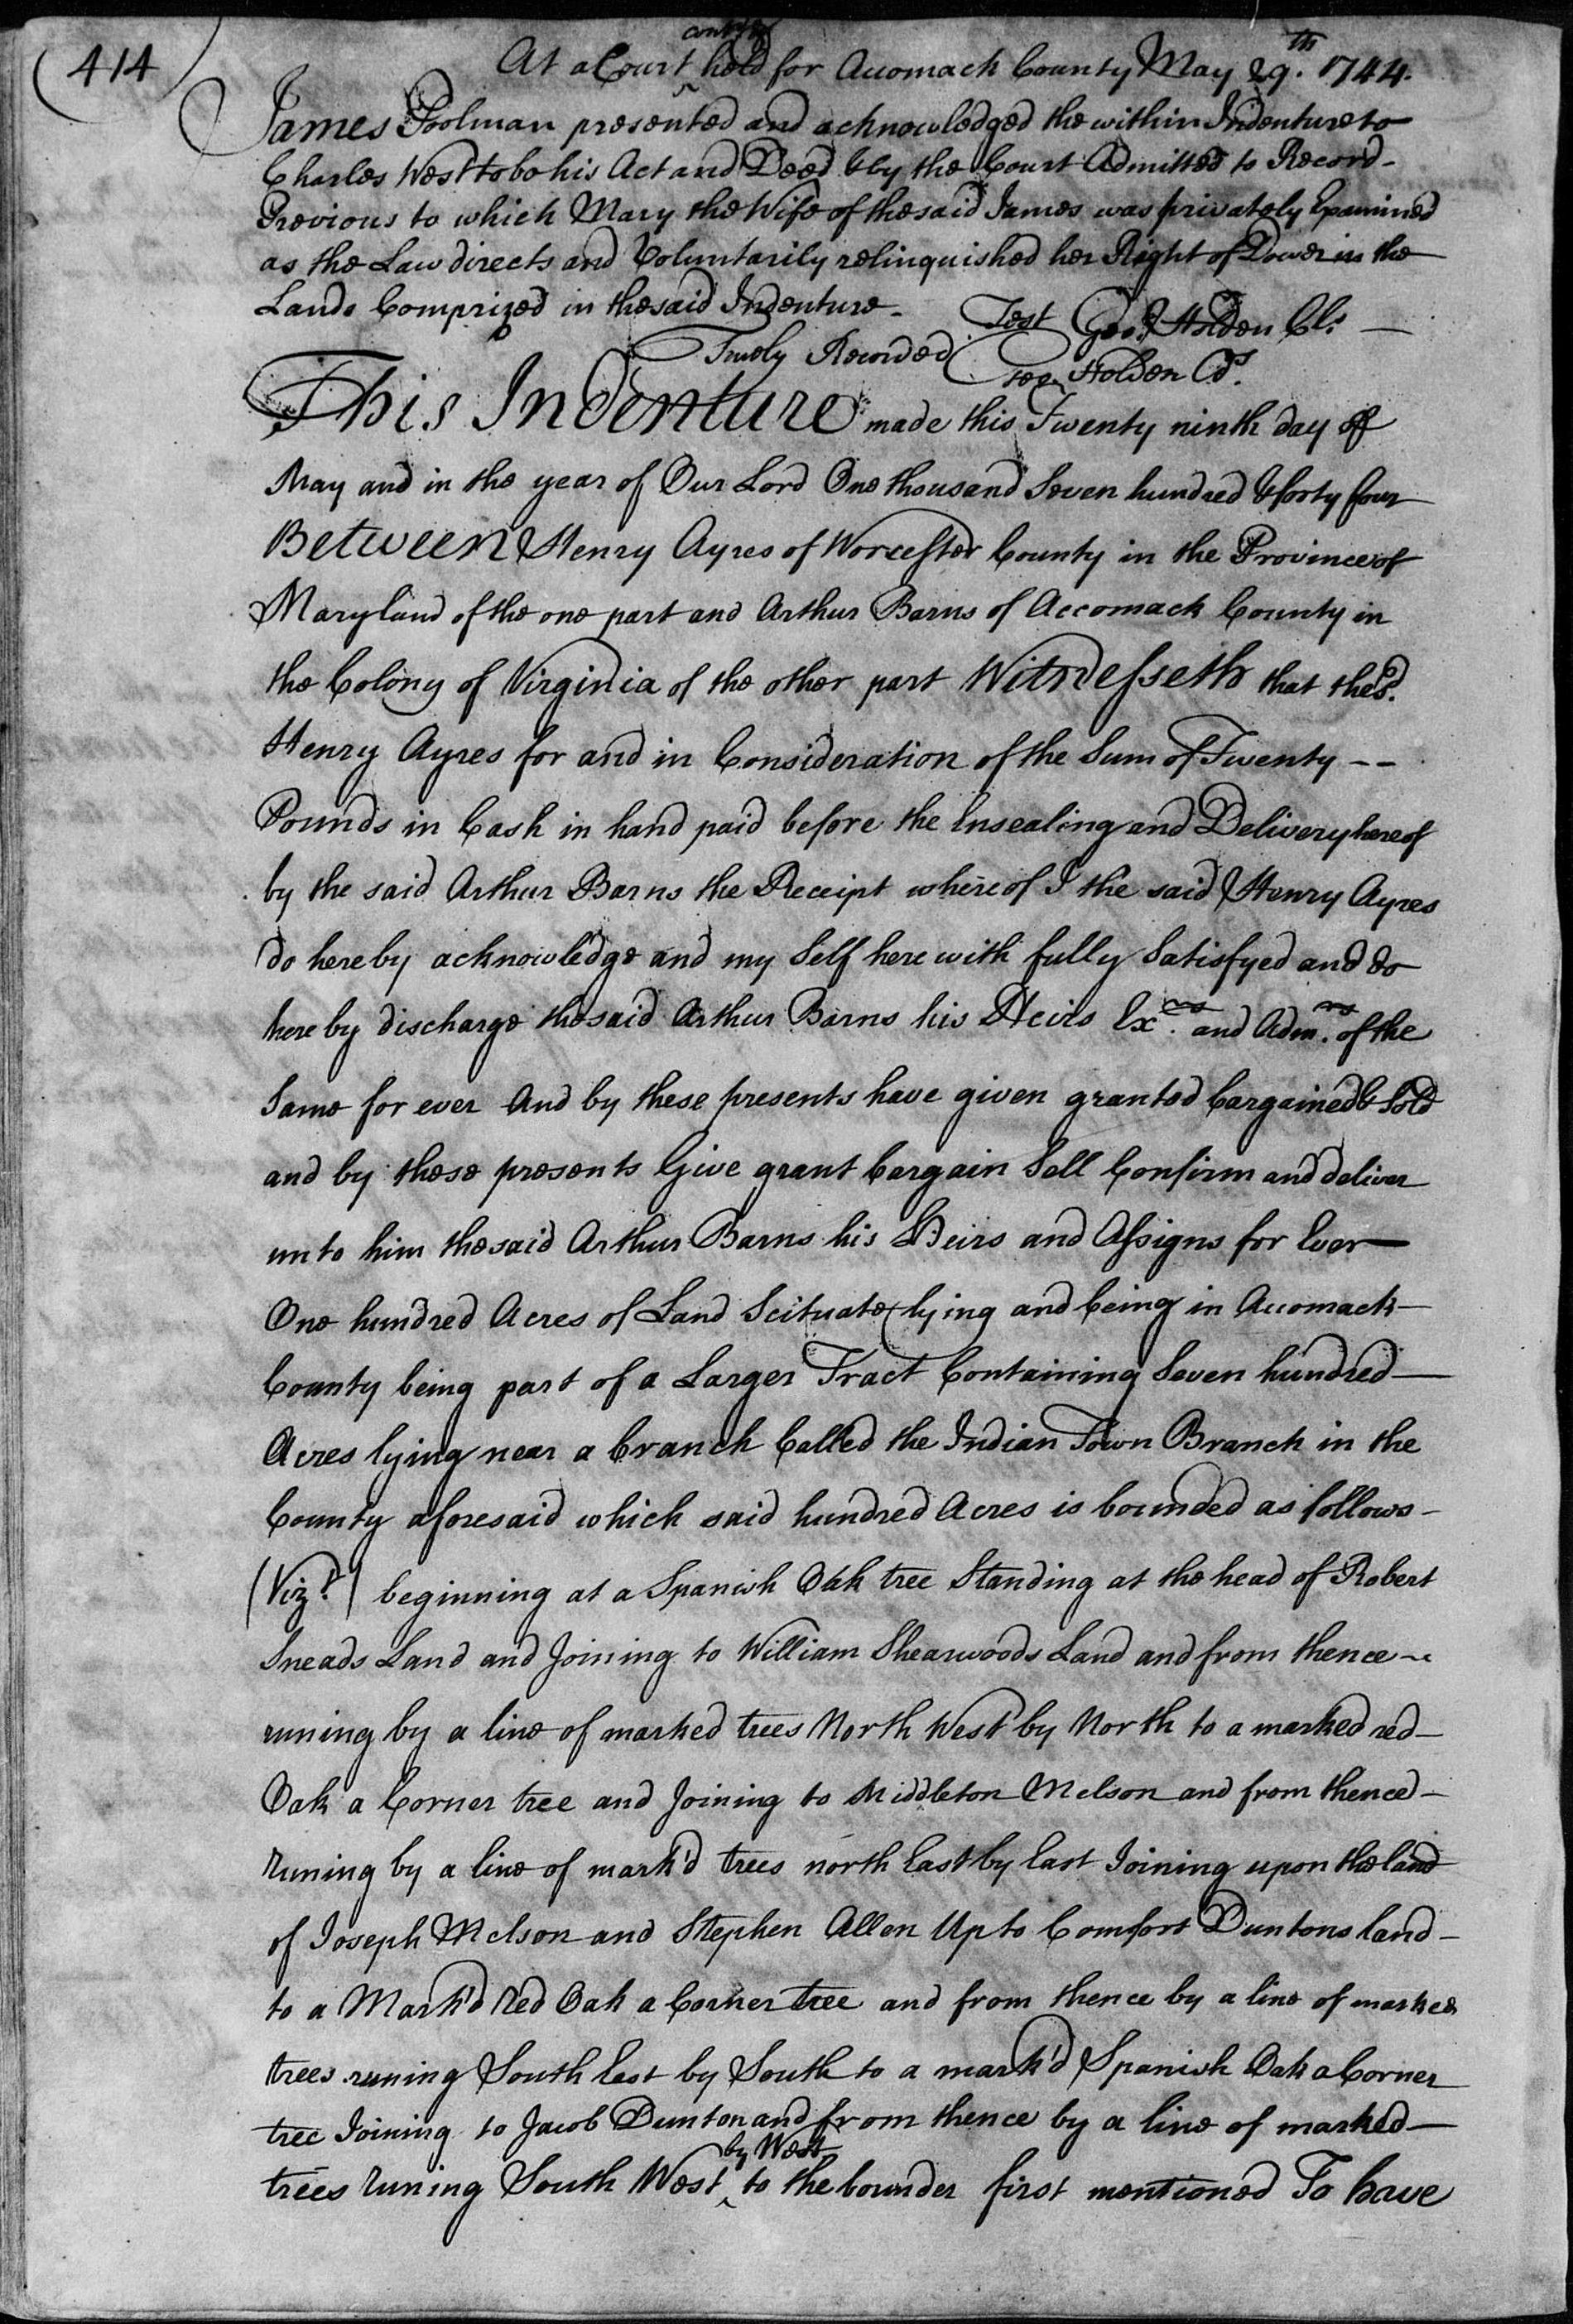 (414)
At a Court contd held for Accomack County May 29th. 1744.
James Poolman presented and acknowledged the within Indenture to
Charles West to be his Act and Deed & by the Court Admitted to Record-
Previous to which Mary the Wife of the said James was privately Examined
as the Law directs and Voluntarily relinquished her Right of Dower in the
Lands Comprized in the said Indenture-
Test Geo: Holden Cl:
Truely Recorded
Holden
This Indenture made this Twenty ninth day of
May and in the year of Our Lord One thousand Seven hundred & forty four
Between Henry Ayres of Worcester County in the Province of
Maryland of the one part and Arthur Barns of Accomack County in
the Colony of Virginia of the other part Witnesseth that the sd.
Henry Ayres for and in Consideration of the Sum of Twenty --
Pounds in Cash in hand paid before the Ensealing and Delivery hereof
by the said Arthur Barns the Receipt whereof I the said Henry Ayres
do hereby acknowledge and my Self here with fully Satisfyed and do
here by discharge the said Arthur Barns his Heirs Exrs. and Admrs. of the
Same for ever And by these presents have given granted bargained & Sold
and by these presents Give grant bargain Sell Confirm and deliver
unto him the said Arthur Barns his Heirs and Assigns for Ever
One hundred Acres of Land Scituate lying and being in Accomack
County being part of a Larger Tract Containing Seven hundred
Acres lying near a branch Called the Indian Town Branch in the
County aforesaid which said hundred Acres is bounded as follows-
(Vizt.) beginning at a Spanish Oak tree Standing at the head of Robert
Sneads Land and Joining to William Shearwoods Land and from thence
runing by a line of marked trees North West by North to a marked red
Oak a Corner tree and Joining to Middleton Melson and from thence
runing by a line of mark'd trees north East by East Joining upon the land
of Joseph Melson and Stephen Allen Up to Comfort Duntons land
to a Mark'd Red Oak a Corner tree and from thence by a line of marked
trees runing South East by South to a mark'd Spanish Oak a Corner
tree Joining to Jacob Dunton and from thence by a line of marked
trees runing South West by West to the bounder first mentioned To have